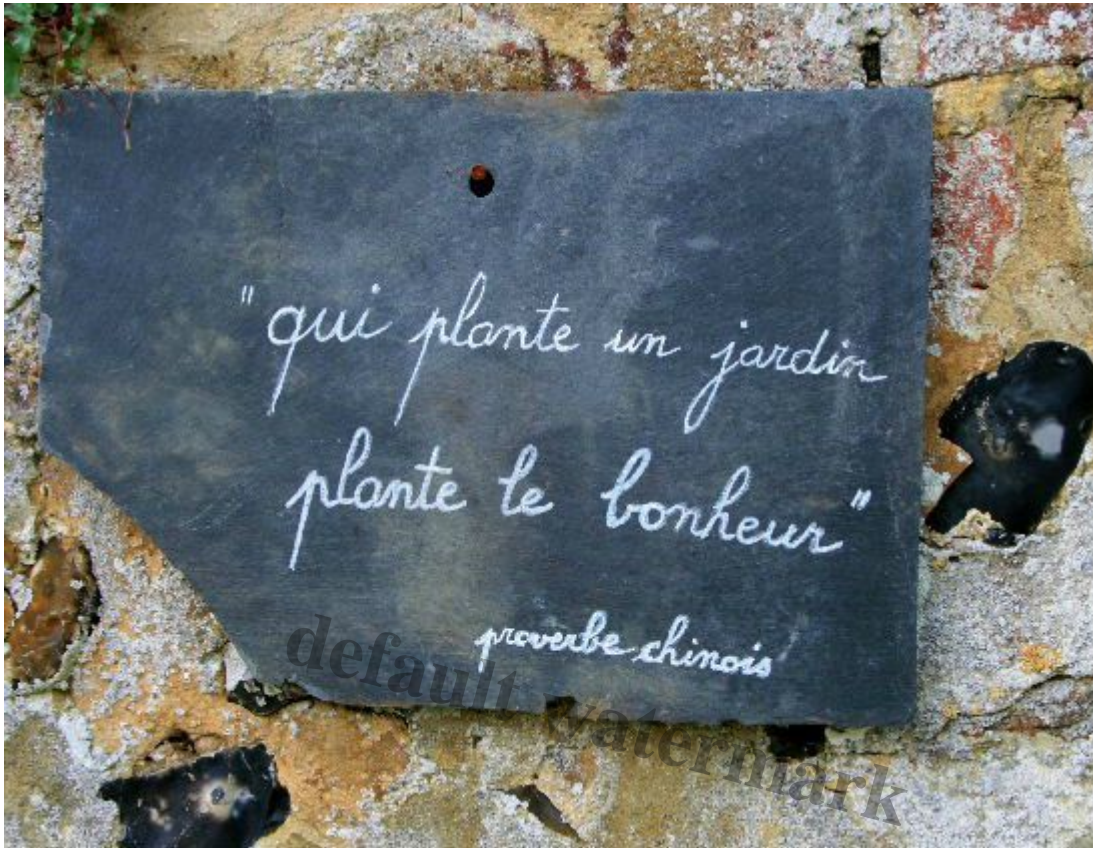 "qui plante un jardin
plante le bonheur"
proverbe chinois
default watermark